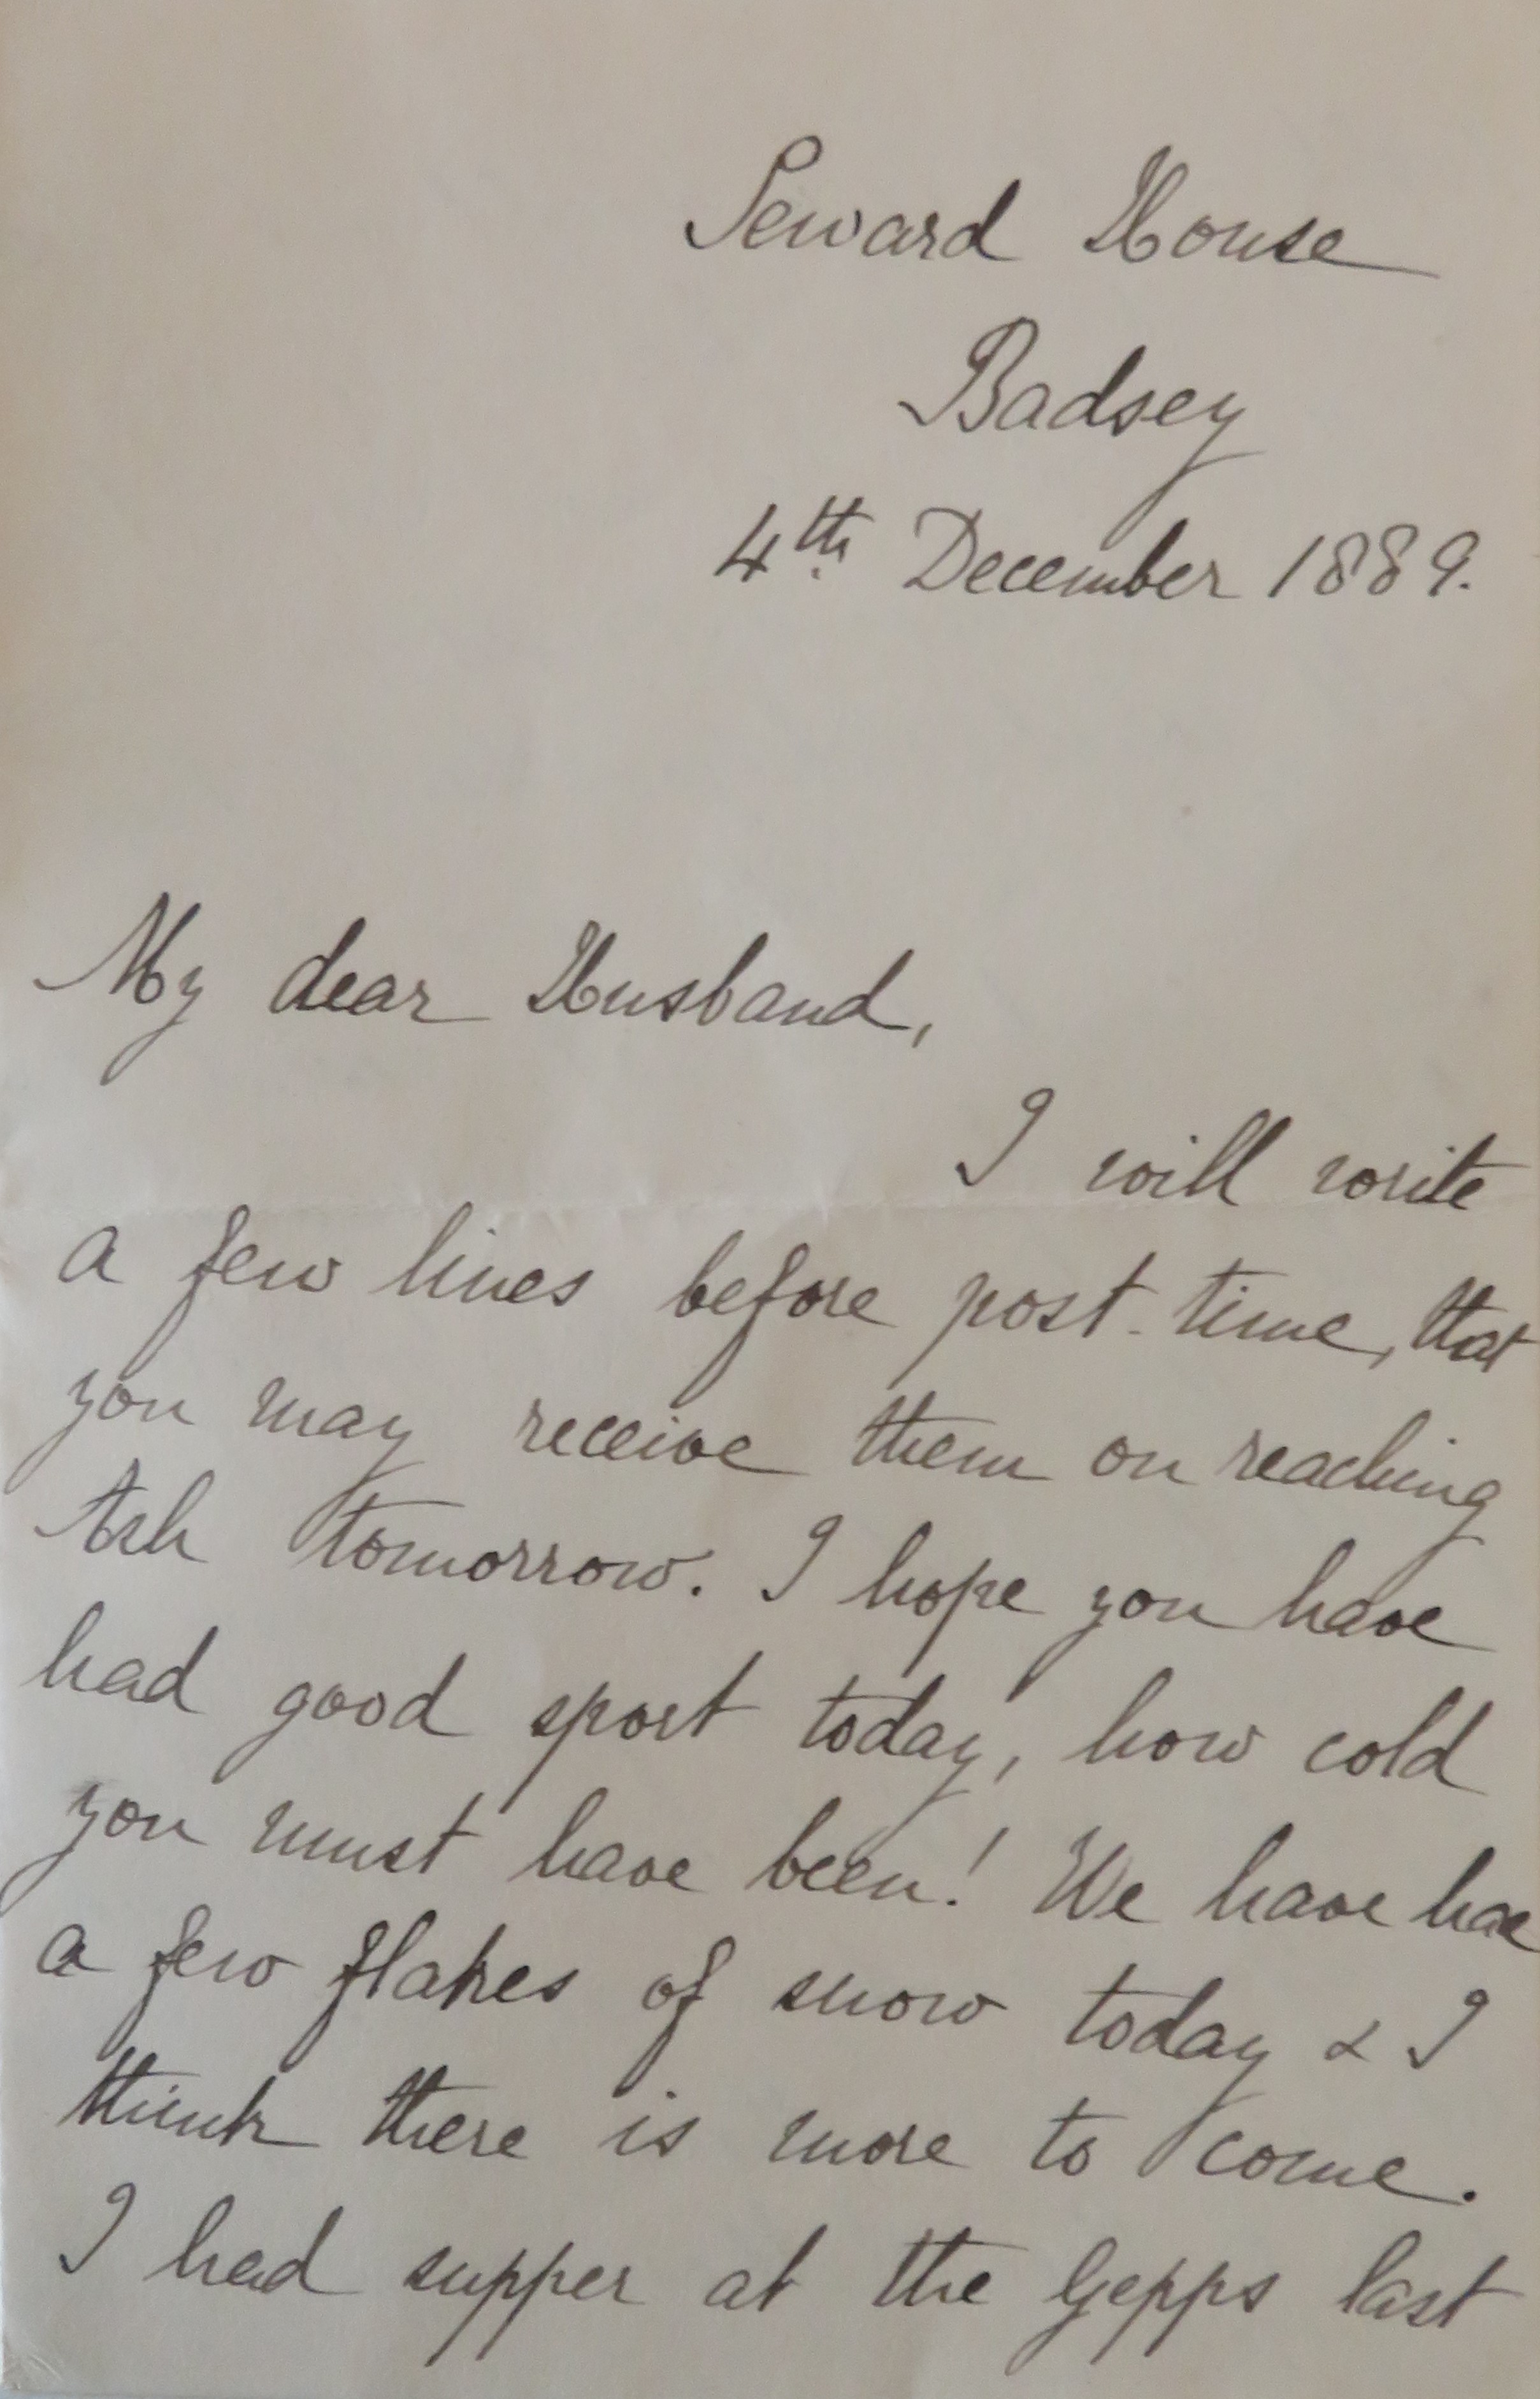 Seward House
Badsey
4th December 1889.
My dear Husband,
I will write
a few lines before post-time, that
you may receive them on reaching
Ash tomorrow. I hope you have
had good sport today, how cold
you must have been! We have had
a few flakes of snow today & I
think there is more to come.
I had supper at the Gepps last